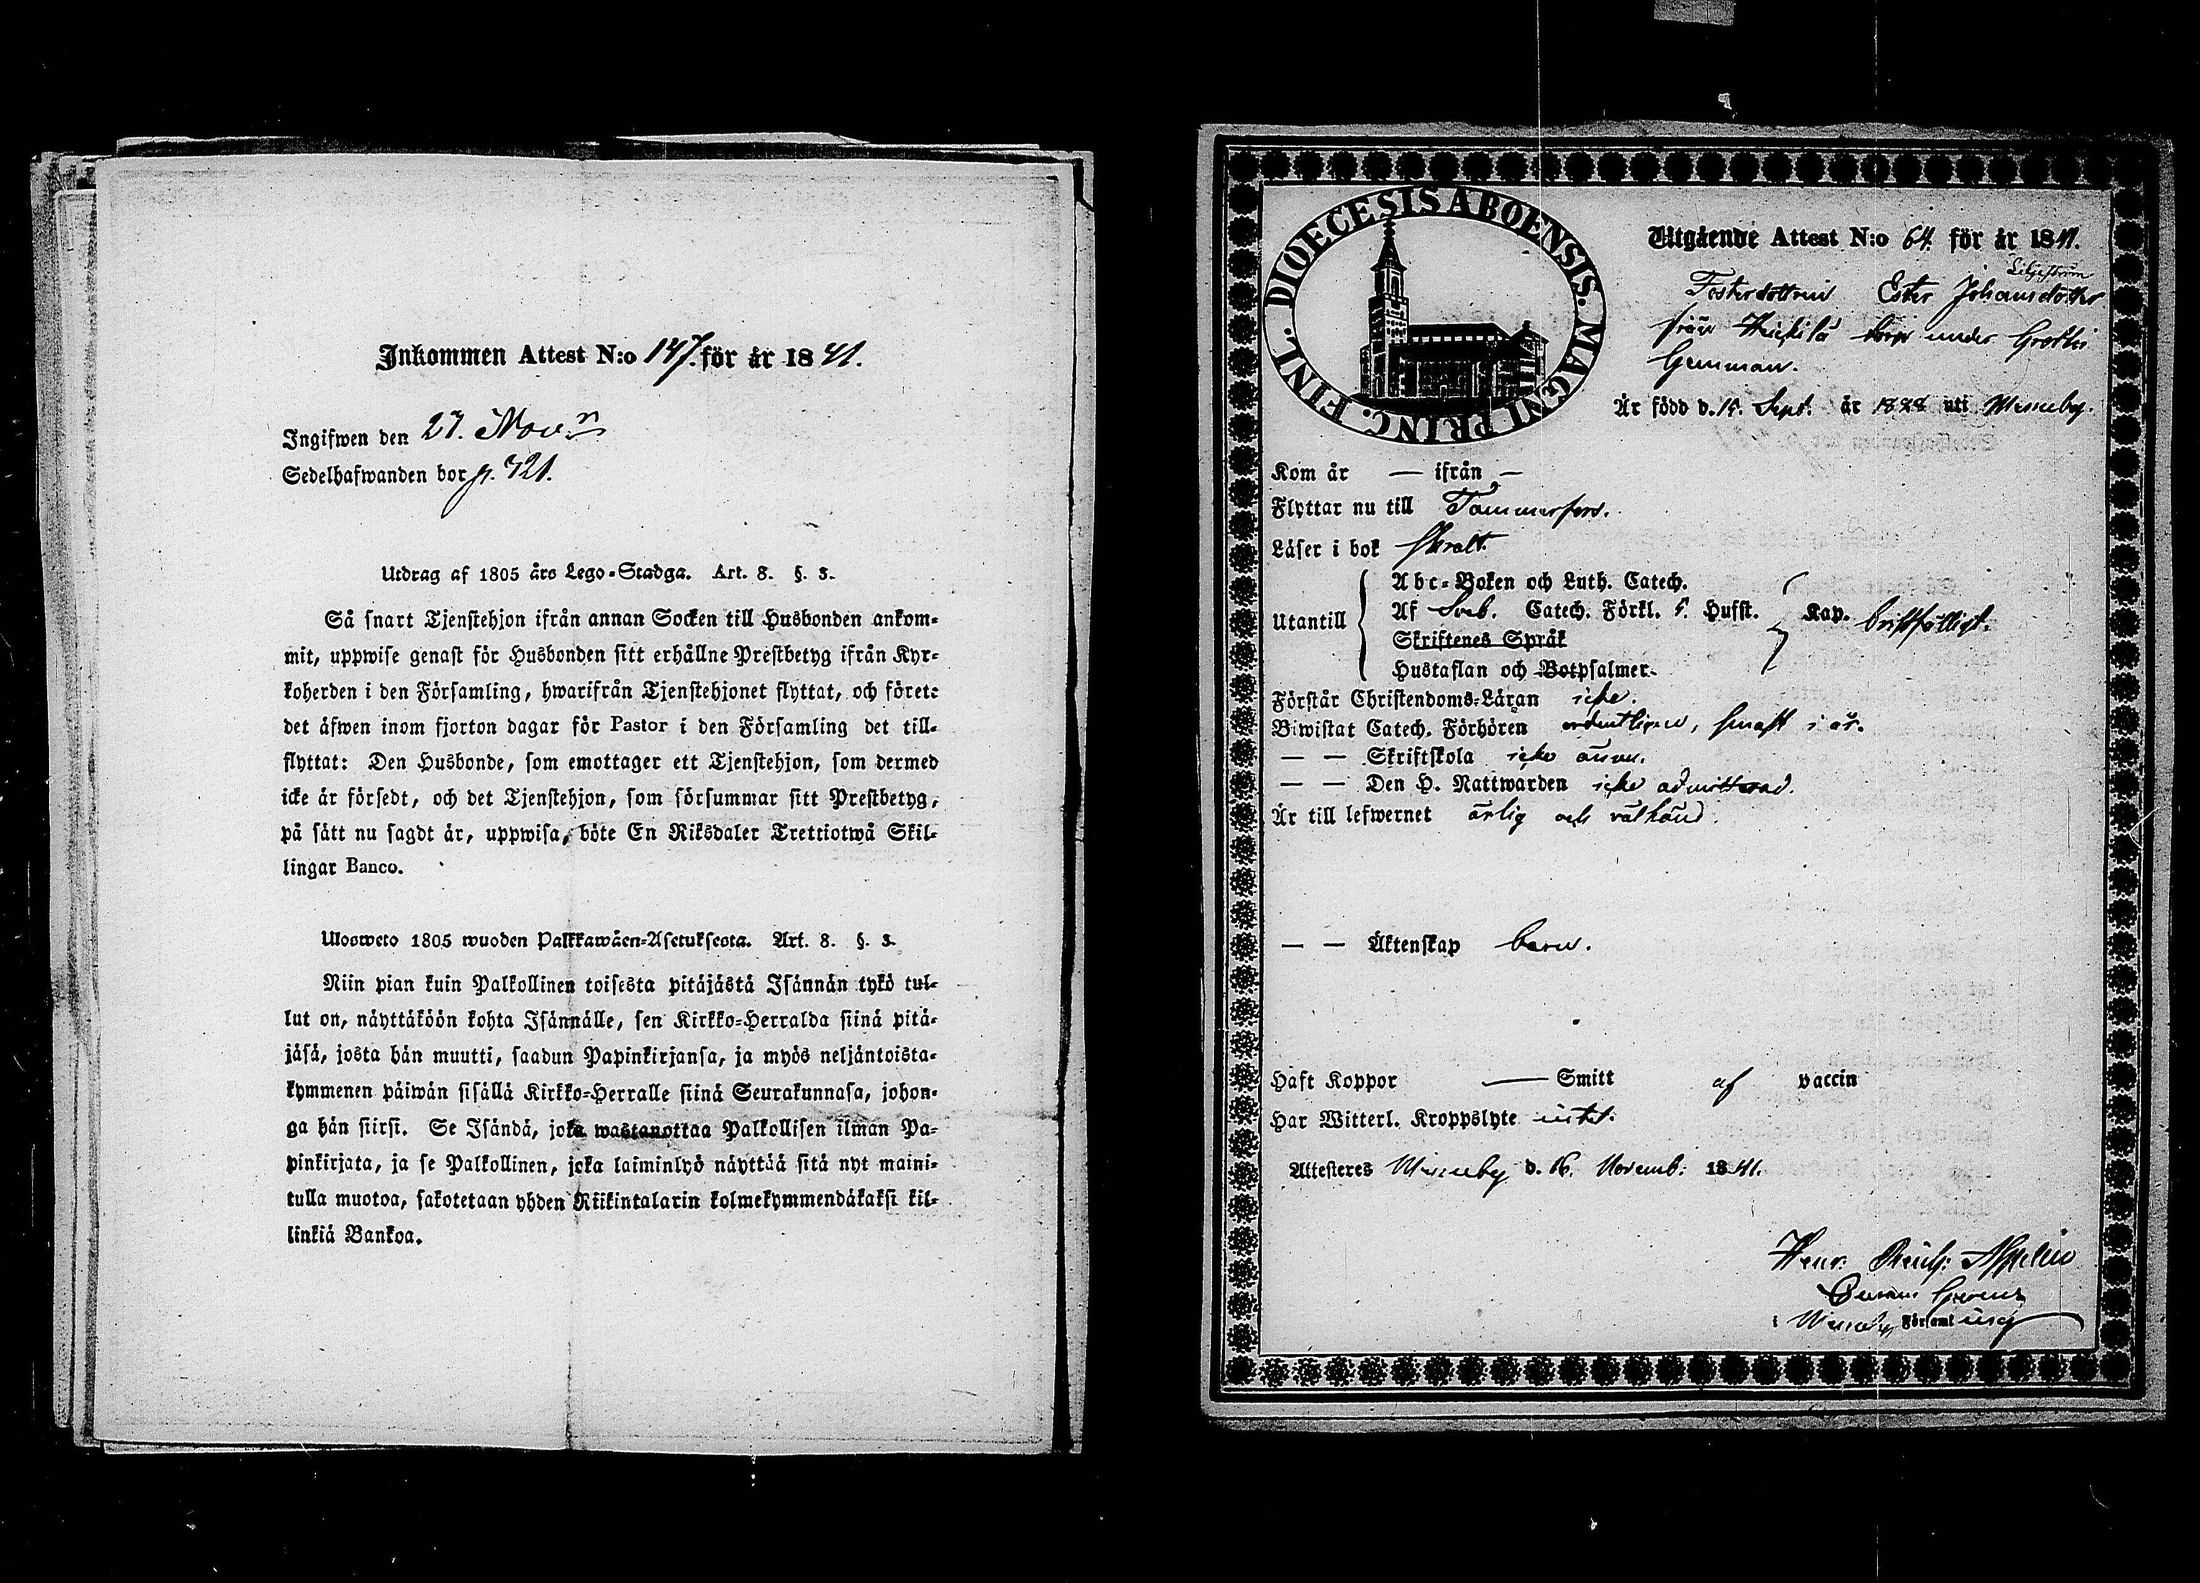 Inkommen Attest N:o 147. för år 1841.
Ingifwen den 27. Nov:r
Sedelhafwanden bor p. 721.
Utdrag af 1805 års Lego-Stadga. Art. 8. §. 3.
Så snart Tjenstehjon ifrån annan Socken till Husbonden ankom-
mit, uppwise genast för Husbonden sitt erhållne Prestbetyg ifrån Kyr-
koherden i den Församling, hwarifrån Tjenstehjonet flyttat, och förete
det äfwen inom fjorton dagar för Pastor i den Församling det till-
flyttat: Den Husbonde, som emottager ett Tjenstehjon, som dermed
icke är försedt, och det Tjenstehjon, som försummar sitt Prestbetyg,
på sätt nu sagdt är, uppwisa, böte En Riksdaler Trettiotwå Skil-
lingar Banco.
Ulosweto 1805 wuoden Palkkawäen-Asetuksesta. Art. 8. §. 3.
Niin pian kuin Palkollinen toisesta pitäjästä Isännän tykö tul-
lut on, näyttäköön kohta Isännälle, sen Kirkko-Herralda siinä pitä-
jäsä, josta hän muutti, saadun Papinkirjansa, ja myös neljäntoista-
kymmenen päiwän sisällä Kirkko-Herralle siinä Seurakunnasa, johon-
ga hän siirsi. Se Isändä, joka wastanottaa Palkollisen ilman Pa-
pinkirjata, ja se Palkollinen, joka laiminlyö näyttää sitä nyt maini-
tulla muotoa, sakotetaan yhden Riikintalarin kolmekymmendäkaksi kil-
linkiä Bankoa.
DIOECESIS ABOENSIS. MAGNI PRINC. FINL.
Utgående Attest N:o 64. för år 1841.
Liljeström
Fosterdottren Ester Johansdotter
från Heickilä torp under
Gumman.
Är född d. 15. Sept. år 1828 uti Messuby.
Kom år — ifrån —
Flyttar nu till Tammerfors.
Läser i bok skralt.
Abc-Boken och Luth. Catech.
Utantill Af Sveb. Catech. Förkl. 5. Hufst. Kap. bristfälligt.
Skriftenes Språk
Hustaflan och Botpsalmer.
Förstår Christendoms-Läran icke.
Biwistat Catech. Förhören ordentligen, senast i år.
— — Skriftskola icke ännu.
— — Den H. Nattwarden icke admitterad.
Är till lefwernet ärlig och välkänd.
— — Äktenskap barn.
Haft Koppor — Smitt af vaccin
Har Witterl. Kroppslyte intet.
Attesteres Messuby d. 16. Novemb: 1841.
Henr.
i Messuby Församling